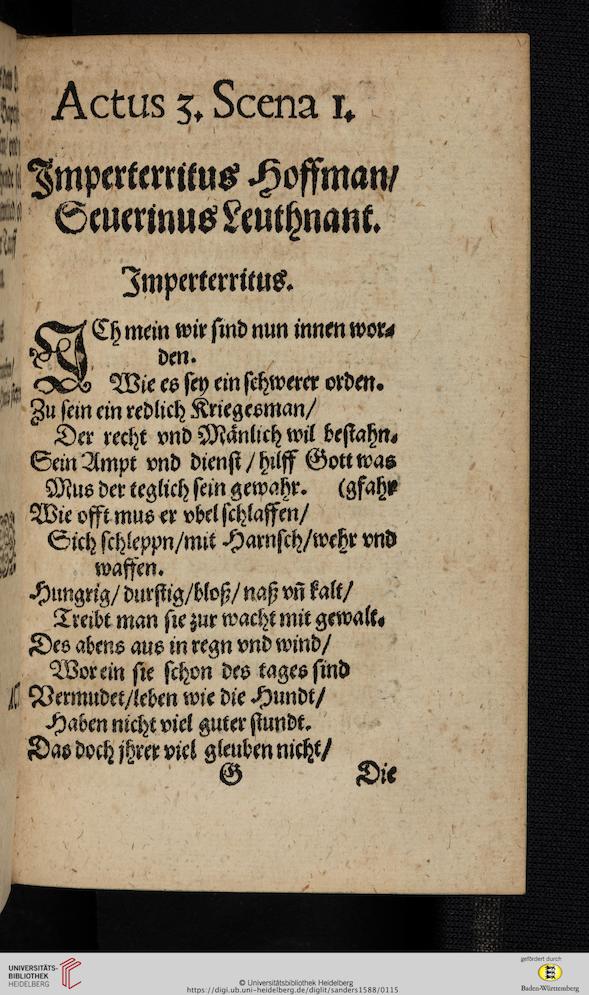 Actus 3. Scena 1.
Imperterritus Hoffman/
Seuerinus Leuthnant.
Imperterritus.
ICh mein wir sind nun innen wor⸗
den.
Wie es sey ein schwerer orden.
Zu sein ein redlich Kriegesman/
Der recht vnd Mänlich wil bestahn.
Sein Ampt vnd dienst / hilff Gott was
Mus der teglich sein gewahr. (gfahr
Wie offt mus er vbel schlaffen/
Sich schleppn/mit Harnsch/wehr vnd
waffen.
Hungrig/ durstig/bloß/ naß vñ kalt/
Treibt man sie zur wacht mit gewalt.
Des abens aus in regn vnd wind/
Worein sie schon des tages sind
Vermudet/leben wie die Hundt/
Haben nicht viel guter stundt.
Das doch jhrer viel gleuben nicht/
G Die
UNIVERSITÄTS-
BIBLIOTHEK
HEIDELBERG
© Universitätsbibliothek Heidelberg
https://digi.ub.uni-heidelberg.de/diglit/sanders1588/0115
gefördert durch
Baden-Württemberg